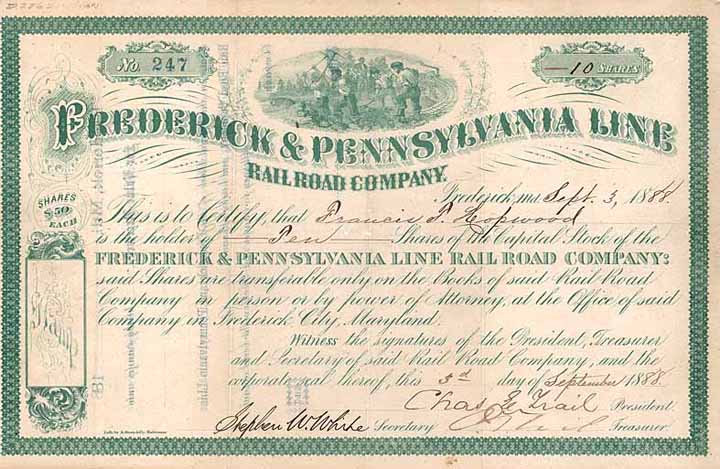 No. 247
10 SHARES
FREDERICK & PENNSYLVANIA LINE
RAIL ROAD COMPANY.
SHARES
$50
EACH
Stamp
Frederick, Md. Sept. 3, 1888.
This is to Certify, that Francis T. Hopwood
is the holder of Ten Shares of the Capital Stock of the
FREDERICK & PENNSYLVANIA LINE RAIL ROAD COMPANY:
said Shares are transferable only on the Books of said Rail Road
Company in person or by power of Attorney, at the Office of said
Company in Frederick City, Maryland.
Witness the signatures of the President, Treasurer
and Secretary of said Rail Road Company, and the
corporate seal thereof, this 3d day of September 1888.
Chas. E. Trail President.
Stephen W. White Secretary
Treasurer.